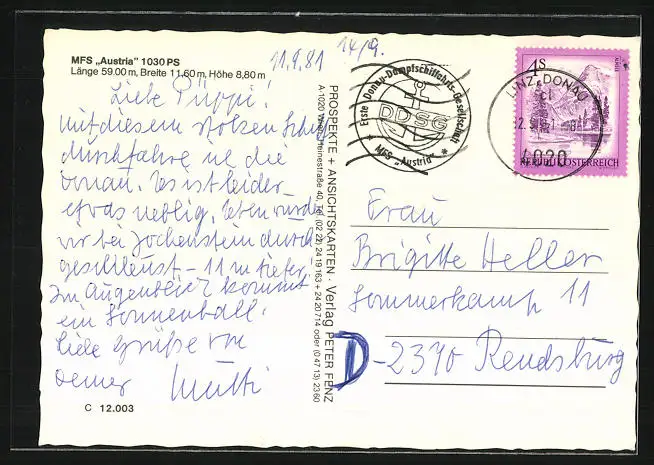 MFS „Austria" 1030 PS
Länge 59.00 m, Breite 11,60 m, Höhe 8,80 m
11.9.81
14/9.
Liebe Püppi,
mit diesem stolzen Schiff
durchfahre ich die
Donau. Es ist leider
etwas neblig. Eben wurden
wir bei Jochenstein durch
geschleust – 11 m tiefer.
Im Augenblick kommt
ein Sonnenball.
Liebe Grüße von
Deiner Mutti
C 12.003
PROSPEKTE + ANSICHTSKARTEN · Verlag PETER FENZ
A-1020 Wien, 40, Tel. (02 22) 24 19 163 + 24 20 714 oder (0 47 13) 23 60
Erste Donau-Dampfschiffahrts-Gesellschaft
DDSG
* MFS „Austria" *
1S
REPUBLIK ÖSTERREICH
LINZ, DONAU
4020
Frau
Brigitte Heller
Sommerkamp 11
D-2370 Rendsburg